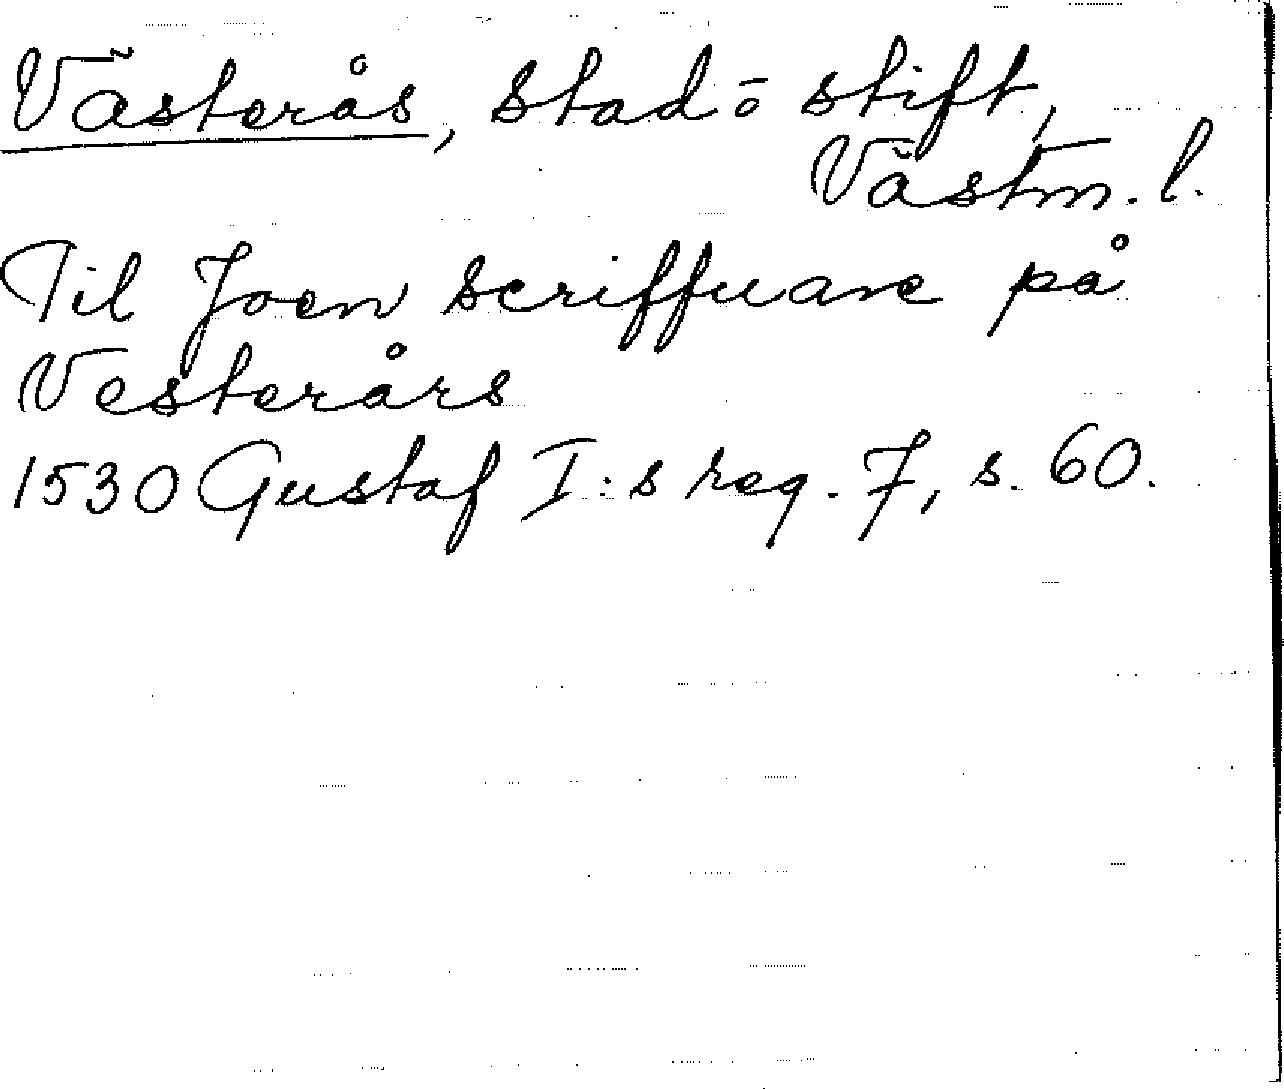 Västerås, stad o stift,
Västm. l.
Til Joen scriffuare på
Vesterårs
1530 Gustaf I:s reg. 7, s. 60.